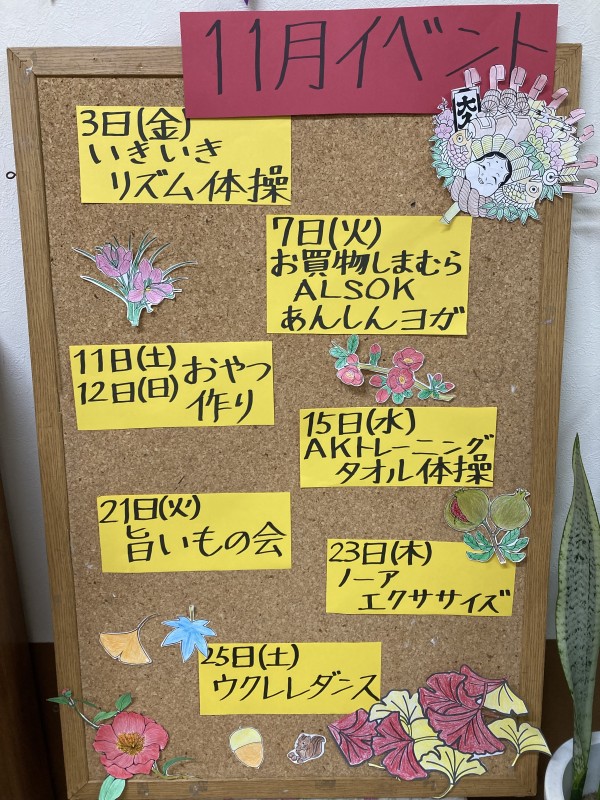 11月イベント
3日(金)
いきいき
リズム体操
7日(火)
お買物しまむら
ALSOK
あんしんヨガ
11日(土)
12日(日)
おやつ
作り
15日(水)
AKトレーニング
タオル体操
21日(火)
旨いもの会
23日(木)
ノーア
エクササイズ
25日(土)
ウクレレダンス